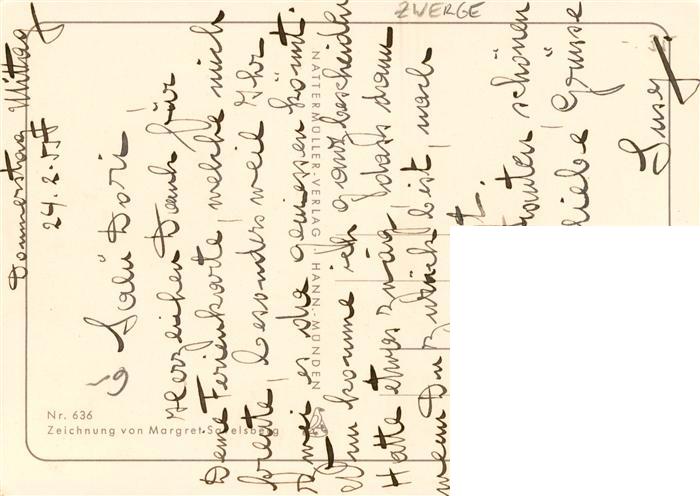 ZWERGE
Donnerstag Mittag
24.2.55
Salü Dori!
Herzlichen Dank für
Deine Ferienkarte, welche mich
freute, besonders weil Ihr
zwei es so geniessen könnt.
Nun komme ich ganz bescheiden
Hatte etwas
wenn Du zurück bist, nach
schönen
liebe Grüsse
Susy
NATTERMÜLLER-VERLAG. HANN.-MÜNDEN
Nr. 636
Zeichnung von Margret Savelsberg